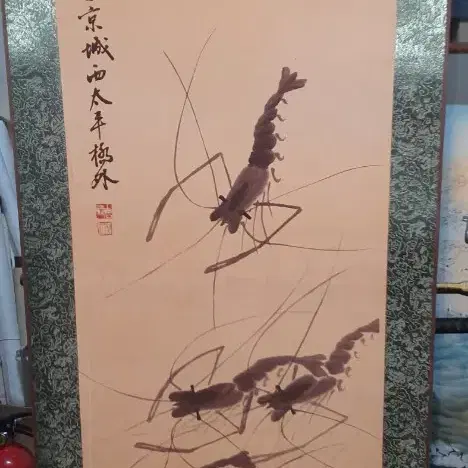 京城西太平橋外